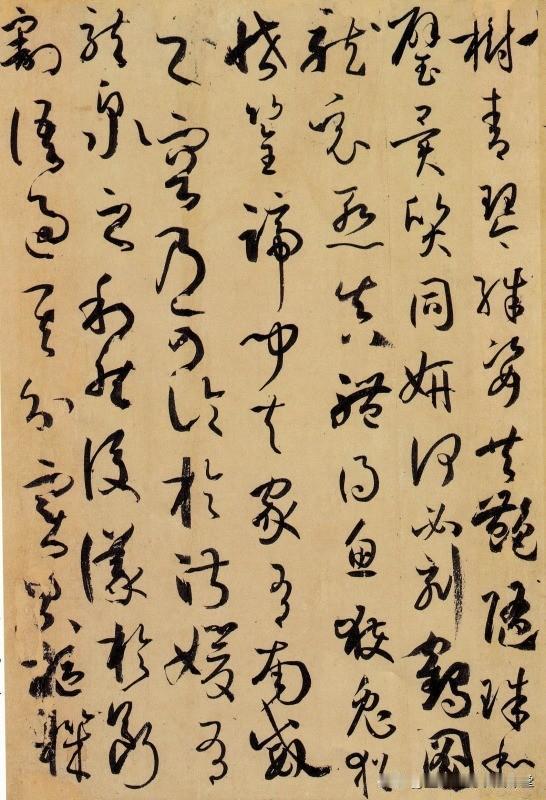 樹青琴殊姿共艷隨珠和
璧異質同妍何必刻鶴圖
龍竟慙真體得魚獲兔猶
恡筌蹄聞夫家有南威
之容乃可論於淑媛有
龍泉之利然後議於斷
割語過其分實累樞機